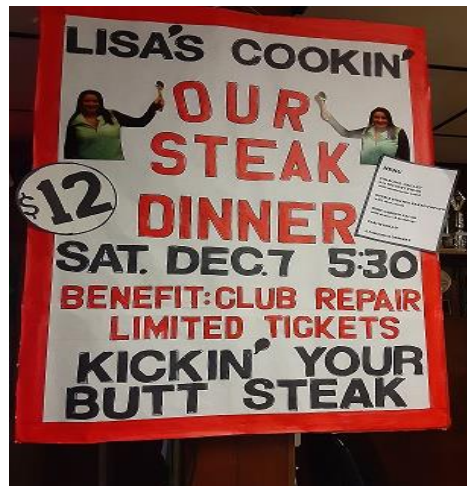 LISA'S COOKIN'
OUR
STEAK
DINNER
$12
MENU
SAT. DEC.7 5:30
BENEFIT:CLUB REPAIR
LIMITED TICKETS
KICKIN' YOUR
BUTT STEAK